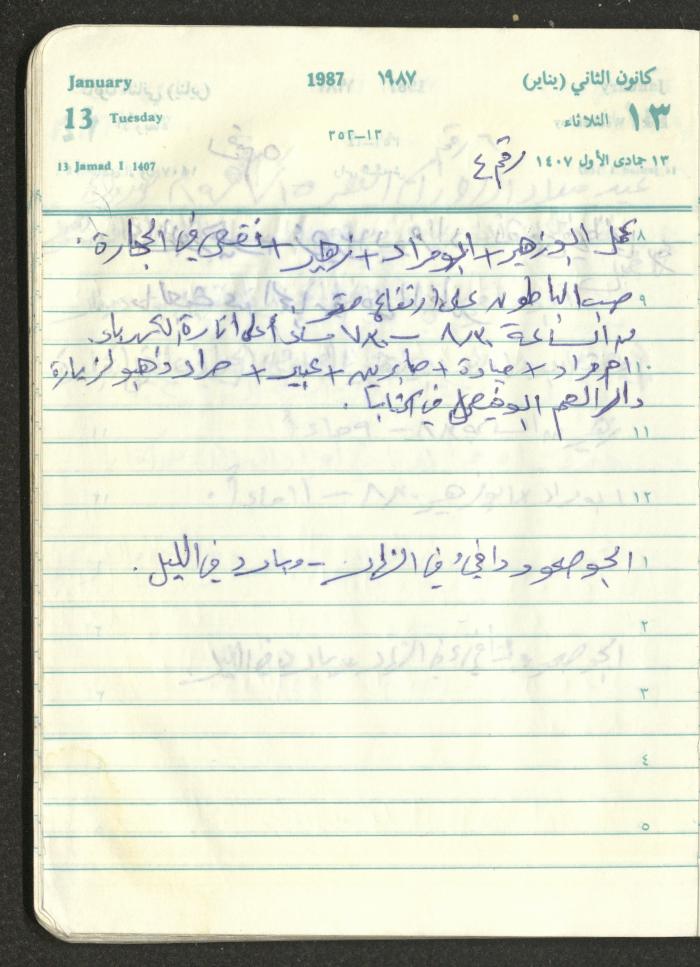 January 1987 ١٩٨٧ كانون الثاني (يناير)
13 Tuesday ١٣ الثلاثاء
٣٥٢-١٣
13 Jamad I 1407 ١٣ جمادى الأول ١٤٠٧
رقم ٤
عمل ابو زهير + ابو مراد + زهير + في الحجارة.
٨
صب الباطون على ارتفاع متر
٩
من الساعة ٨٣٠ – ٧٣٠ مساءً على انارة الكهرباء.
١٠
ام مراد + ميادة + صابرين + عبير + مراد ذهبو لزيارة
دار العم ابو فيصل في
١١
١٢
الجو صحو ودافيء في النهار – وبارد في الليل.
١
٢
٣
٤
٥